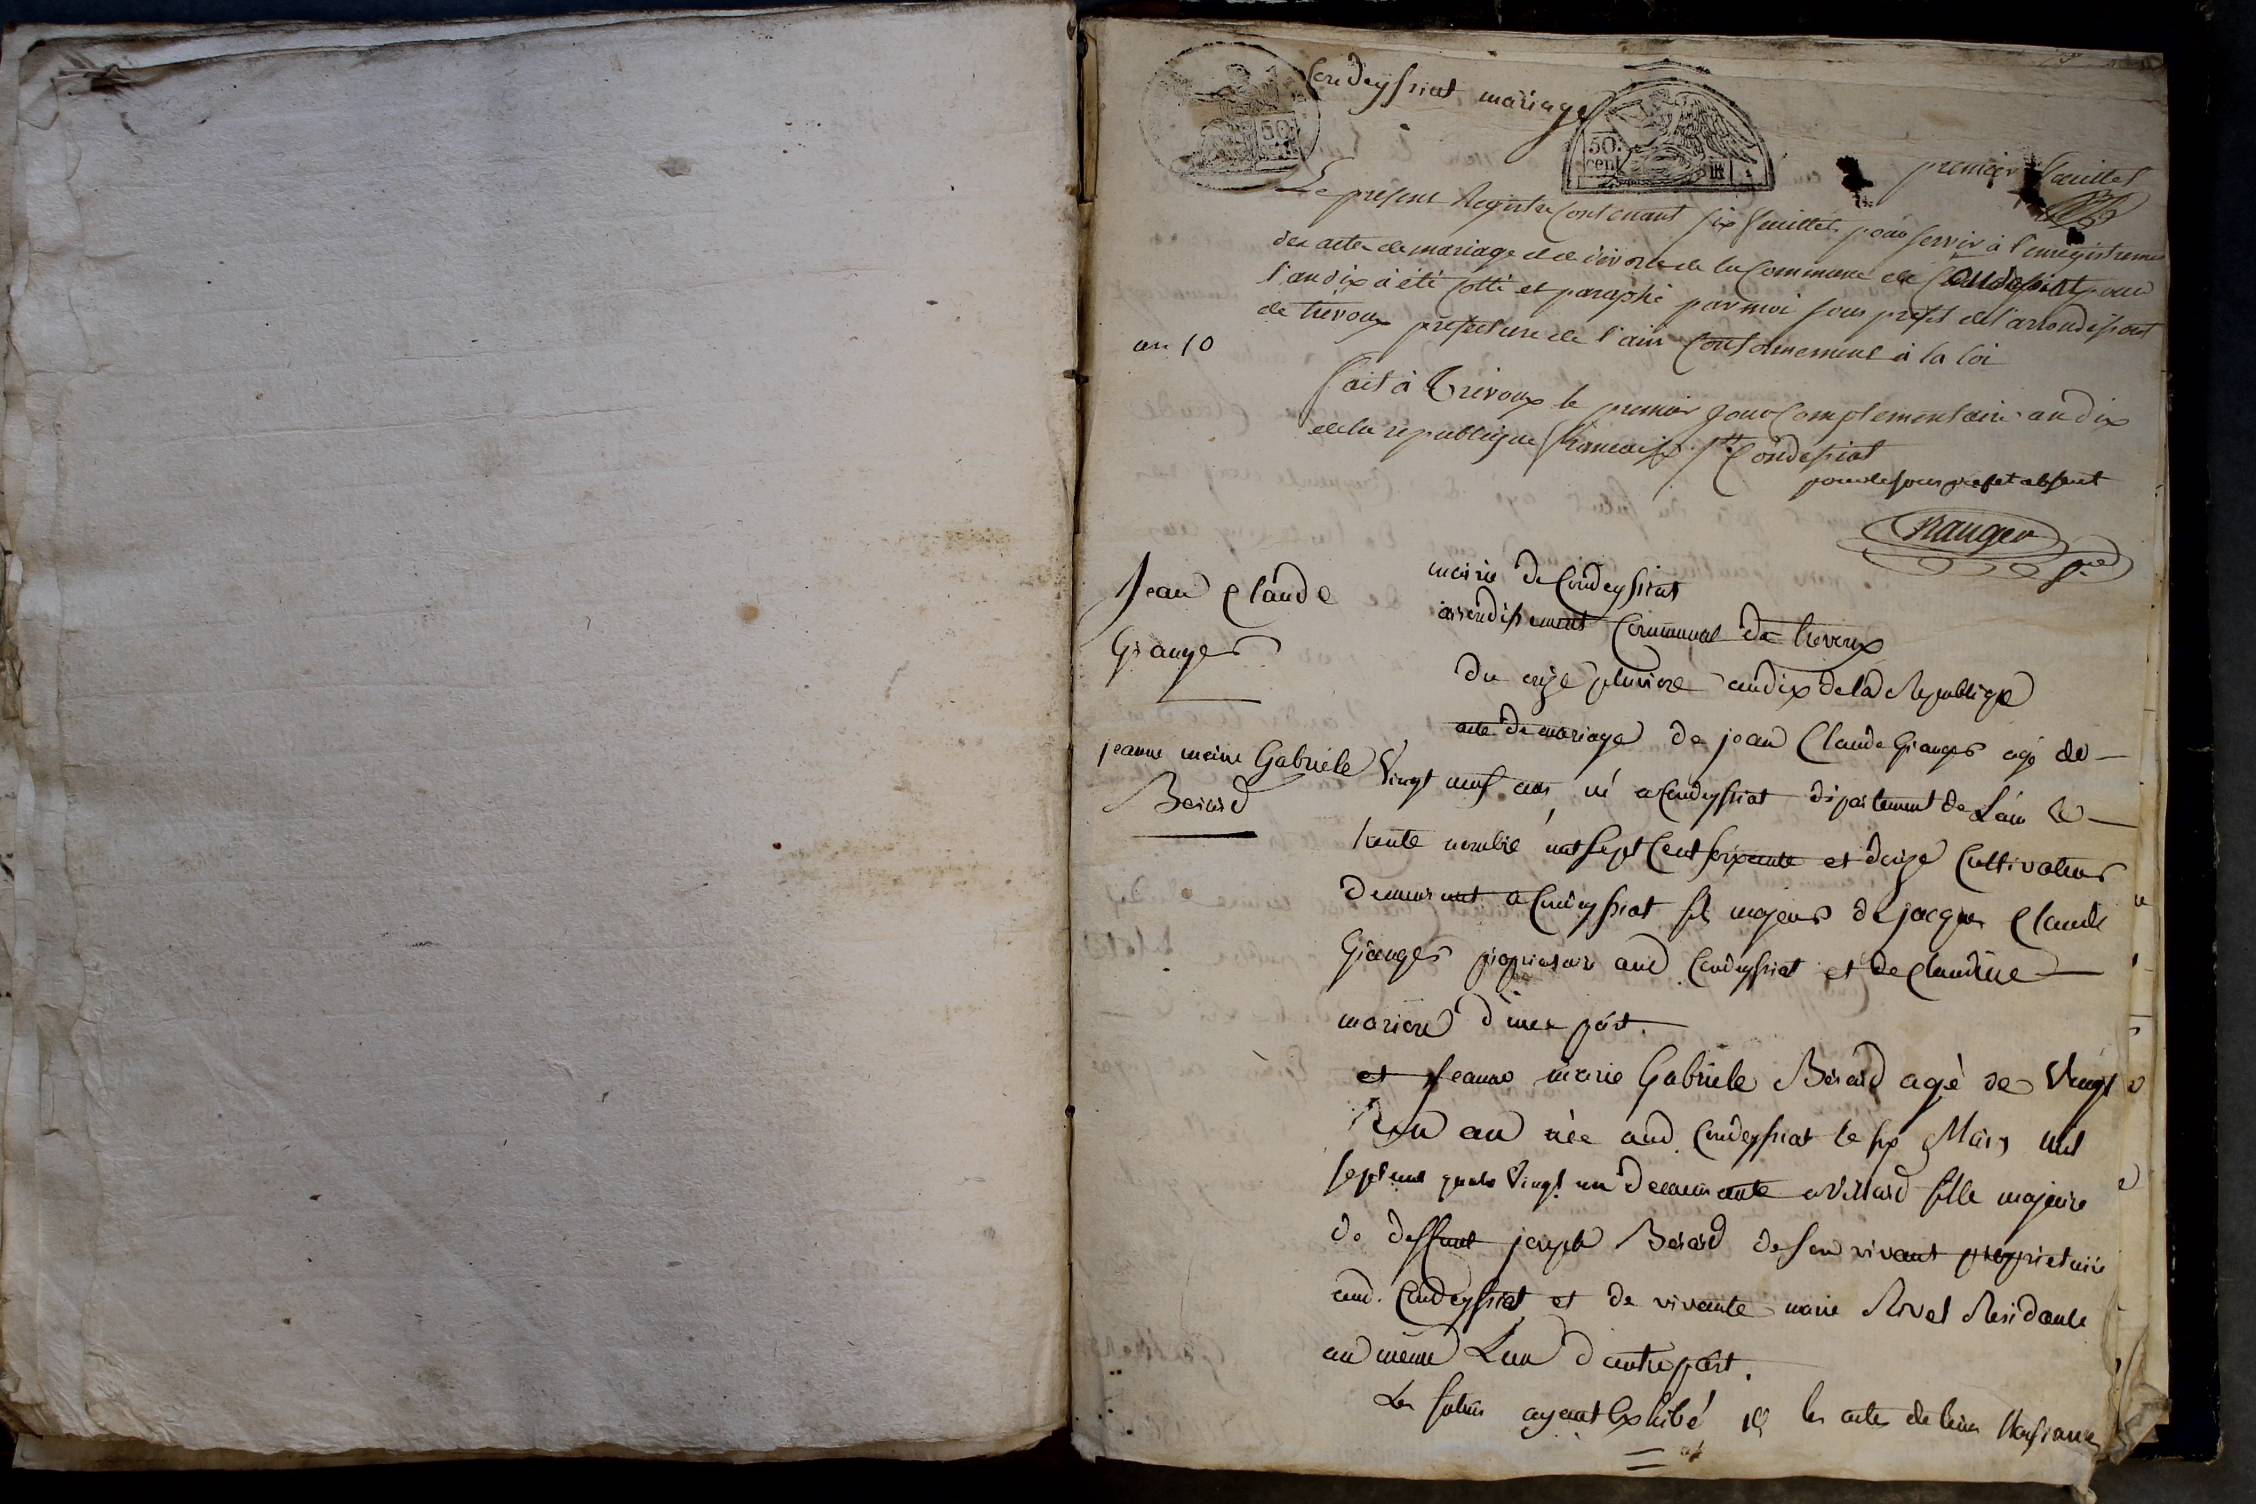 Condeyssiat mariage
50. cent
50. cent
premier feuillet
Le present Registre Contenant six feuillets pour servir à l'enregistrement
des actes de mariage et de divorce de la Commune de Condeissiat pour
l'an dix à été Cotté et paraphé par moi sous prefet de l'arrondissemt
de trevoux prefecture de l'ain Conformement à la loi
an 10
fait à Trevoux le premier jour Complementaire an dix
de la republique francaise Condessiat
pour le sous prefet absent
mairie de Condeyssiat
arrondissement Communal de trevoux
Jean Claude
Granger
Du onze pluviose an dix de la Republique
acte de mariage de jean Claude Granger agé de
jeanne marie Gabriele
Berard
Vingt neuf ans né a Condeyssiat département de L'ain le
trente novembre mil sept Cent soixante et douze Cultivateur
demeurant a Condeyssiat fils majeur de jacques Claude
Granger propriétaire aud Condeyssiat et de Claudine
d'une part.
et Jeanne marie Gabriele Berard agé de Vingt
un an née aud. Condeyssiat le six Mars mil
sept cent quatre Vingt un demeurante a Villard fille majeure
de deffunt joseph Berard de son vivant proprietaire
aud. Condeyssiat et de vivante marie Rivet Residante
au même Lieu d'autre part.
Les futurs ayant Exhibé les actes de leur Naissance